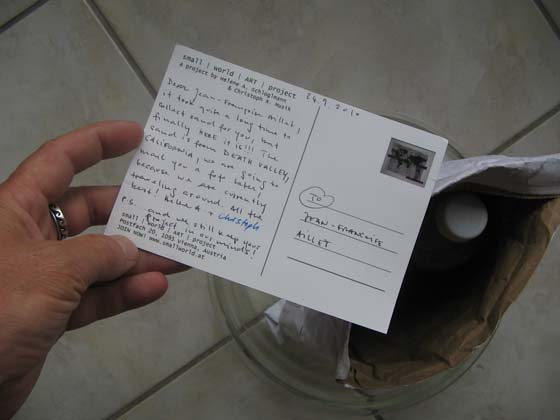 small | world | ART | project
a project by Helene A. Schloglmann
& Christoph A. Musik
24.9.2010
Dear Jean-Françoise Millet!
it took quite a long time to
collect sand for you, but
finally HERE it is!!! The
sand is from DEATH VALLEY,
CALIFORNIA, we are going to
mail you a foto later
because we are currently
traveling around. All the
best! Helene + Christoph
P.S. and we still keep your
project in our minds!
small | world | ART | project
Postfach 20, 1095 Vienna, Austria
JOIN NOW! www.smallworld.at
TO
JEAN-FRANCOISE
MILLET